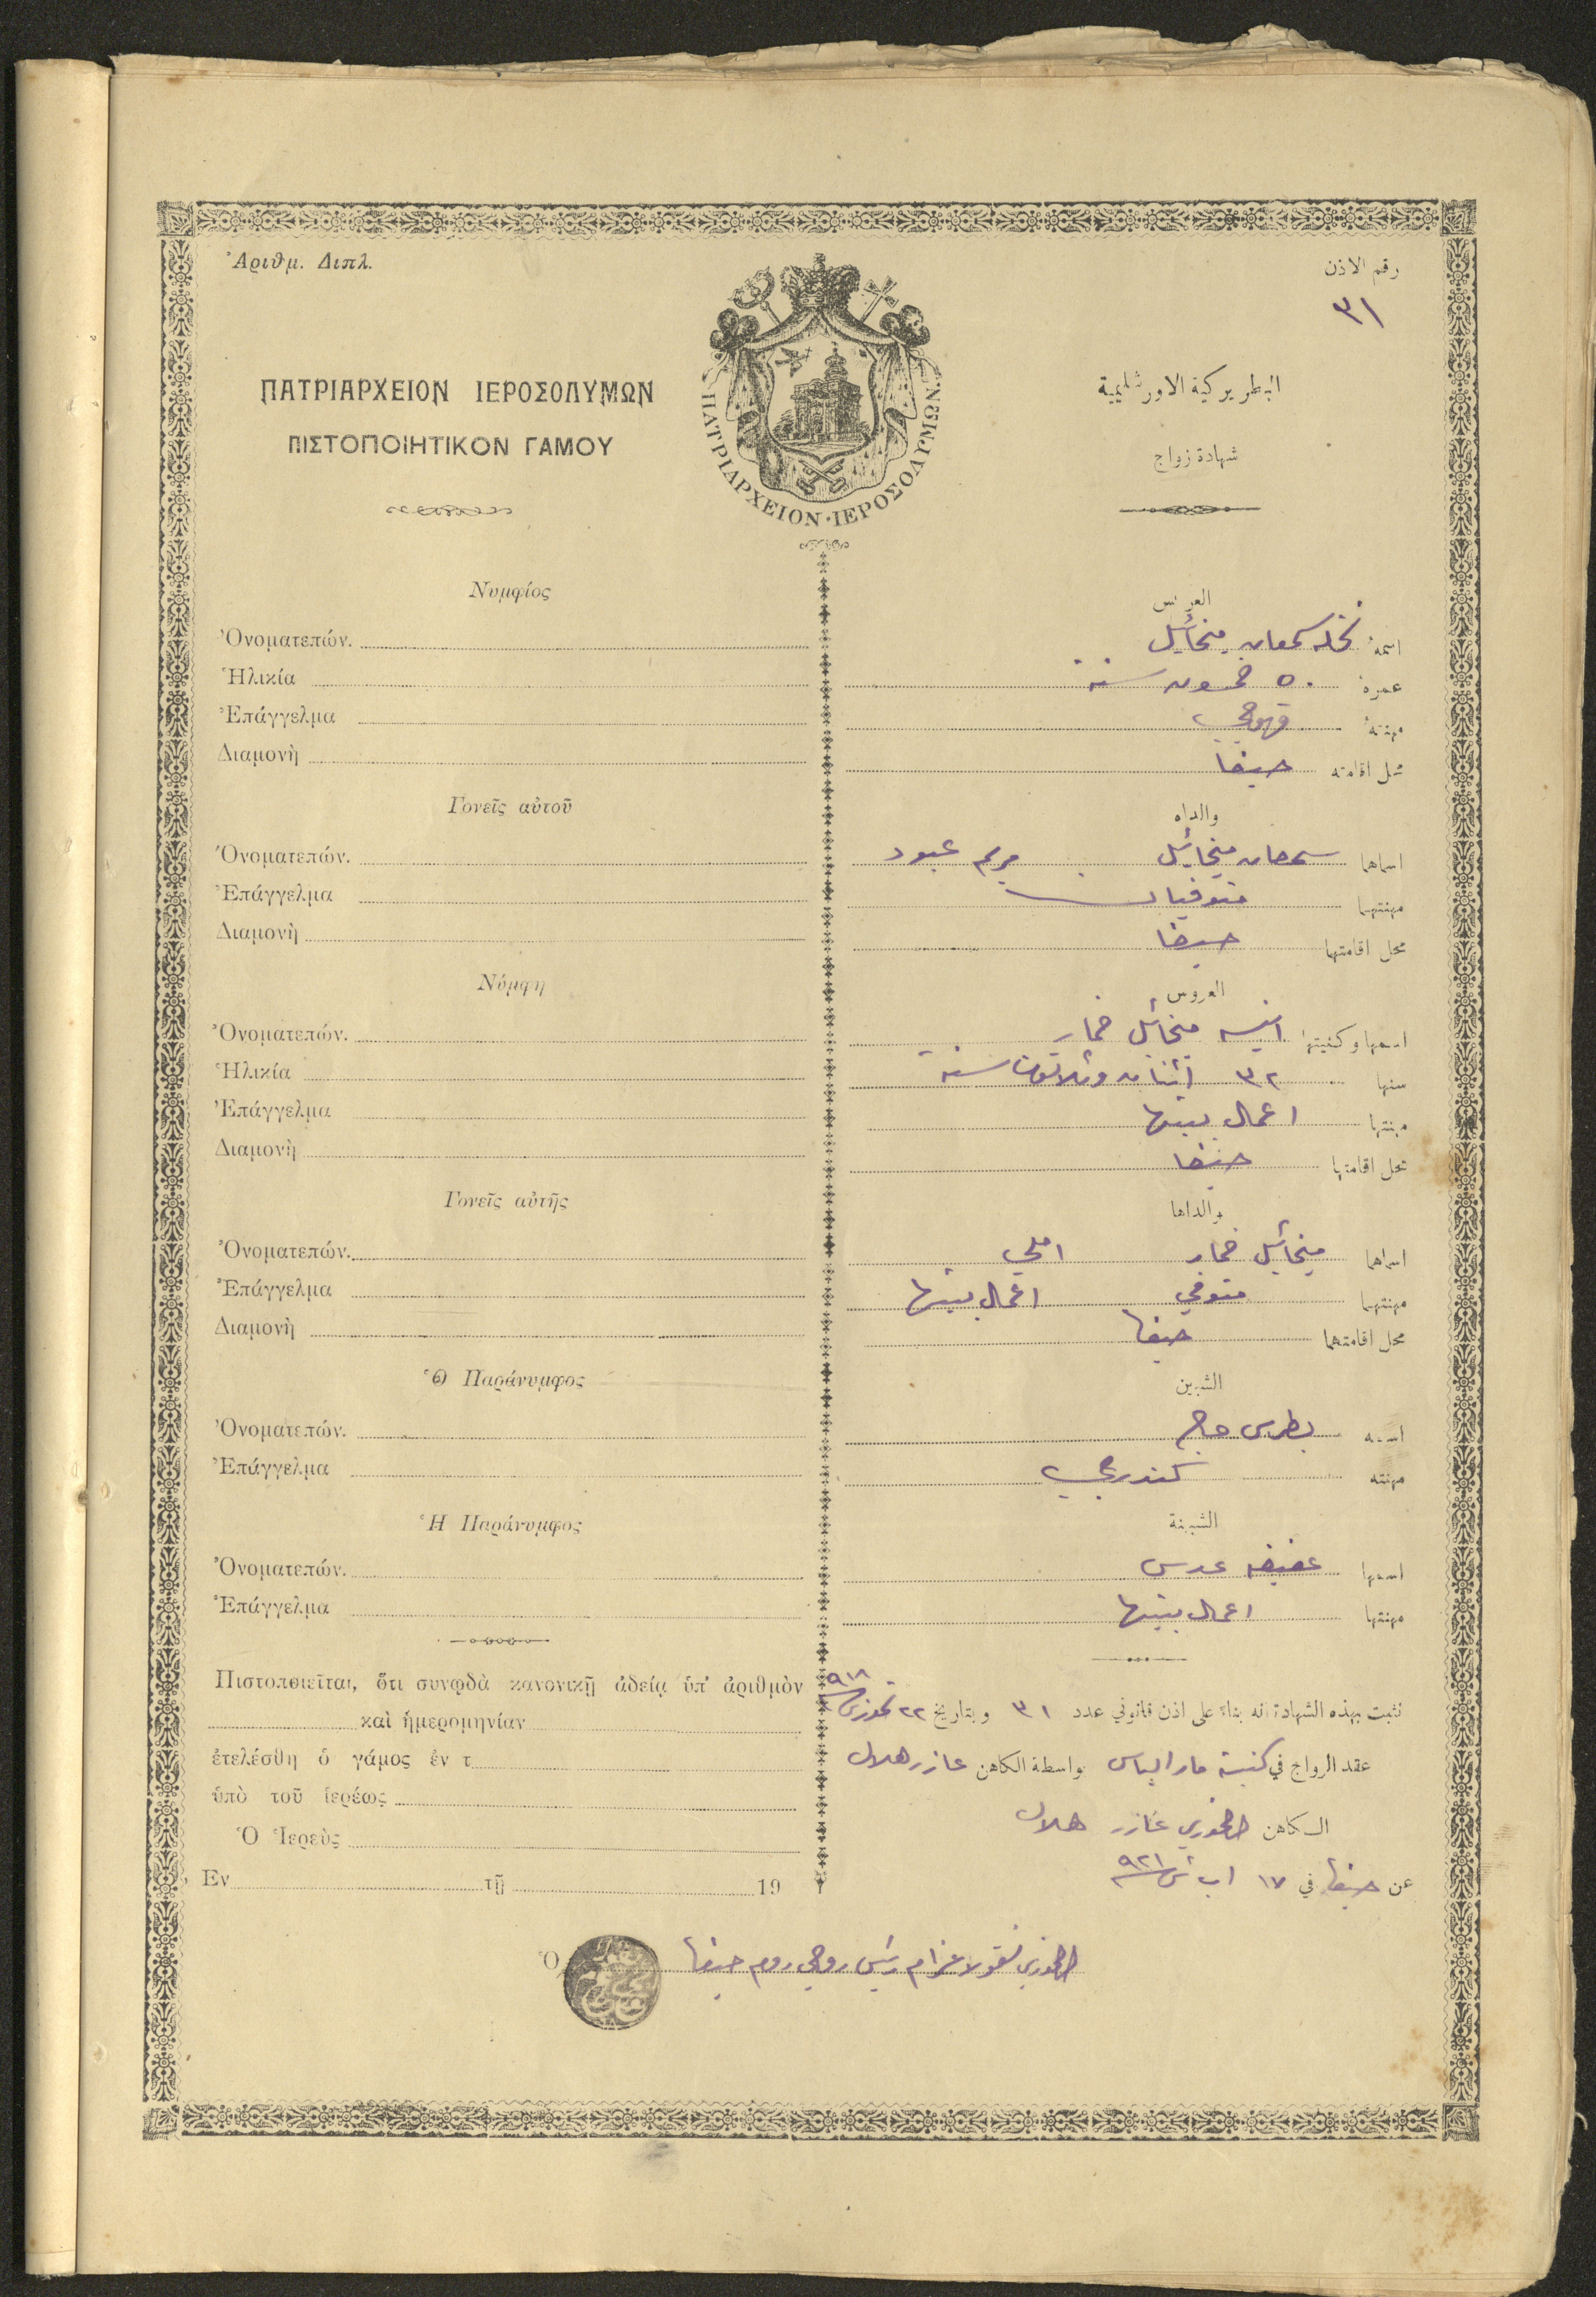 Ἀριθμ. Διπλ.
رقم الاذن
٣١
ΠΑΤΡΙΑΡΧΕΙΟΝ ΙΕΡΟΣΟΛΥΜΩΝ
ΠΙΣΤΟΠΟΙΗΤΙΚΟΝ ΓΑΜΟΥ
ΠΑΤΡΙΑΡΧΕΙΟΝ·ΙΕΡΟΣΟΛΥΜΩΝ
البطريركية الاورشليمية
شهادة زواج
Νυμφίος
Ὀνοματεπών.
Ἡλικία
Ἐπάγγελμα
Διαμονὴ
Γονεῖς αὐτοῦ
Ὀνοματεπών.
Ἐπάγγελμα
Διαμονὴ
Νύμφη
Ὀνοματεπών.
Ἡλικία
Ἐπάγγελμα
Διαμονὴ
Γονεῖς αὐτῆς
Ὀνοματεπών.
Ἐπάγγελμα
Διαμονὴ
Ὁ Παράνυμφος
Ὀνοματεπών.
Ἐπάγγελμα
Ἡ Παράνυμφος
Ὀνοματεπών.
Ἐπάγγελμα
Πιστοποιεῖται, ὅτι συνῳδὰ κανονικῇ ἀδείᾳ ὑπ' ἀριθμὸν
καὶ ἡμερομηνίαν
ἐτελέσθη ὁ γάμος ἐν τ
ὑπὸ τοῦ ἱερέως
Ὁ Ἱερεὺς
Ἐν τῇ 19
العريس
اسمهُ نخله سمعان ميخائيل
عمرهُ ٥٠ خمسون سنة
مهنتهُ قهوجي
محل اقامته حيفا
والداه
اسماهما سمعان ميخائيل مريم عبود
مهنتهما متوفيان
محل اقامتهما حيفا
العروس
اسمها وكنيتها انيسه ميخائيل خمار
سنها ٣٢ اثنان وثلاثون سنة
مهنتها اعمال بيتها
محل اقامتها حيفا
والداها
اسماهما ميخائيل خمار املي
مهنتهما متوفي اعمال بيتها
محل اقامتهما حيفا
الشبين
اسمه بطرس حاج
مهنته كندرجي
الشبينة
اسمها عفيفه عدس
مهنتها اعمال بيتها
نثبت بهذه الشهادة انه بناءً على اذن قانوني عدد ٣١ وبتاريخ ٢٢ تموز ٩١٨
عقد الزواج في كنيسة مار الياس بواسطة الكاهن عازر هلال
الكاهن الخوري عازر هلال
عن حيفا في ١٧ اب ش ٩٢١
Ὁ
الخوري نقولا عزام رئيس روحي روم حيفا